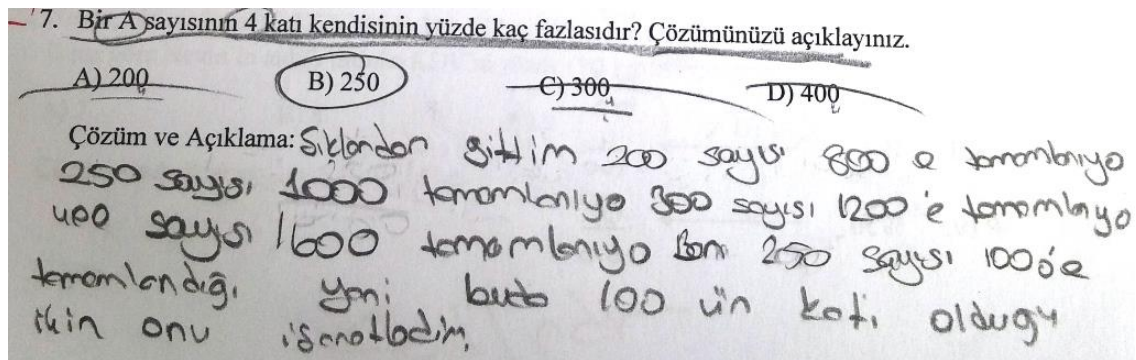 7. Bir A sayısının 4 katı kendisinin yüzde kaç fazlasıdır? Çözümünüzü açıklayınız.
A) 200 B) 250 C) 300 D) 400
Çözüm ve Açıklama: Şıklardan gittim 200 sayısı 800 e tamamlanıyo
250 sayısı 1000 tamamlanıyo 300 sayısı 1200'e tamamlanıyo
400 sayısı 1600 tamamlanıyo 250 sayısı 1000'e
tamamlandığı yani buda 100 ün katı olduğu
için onu işaretledim,